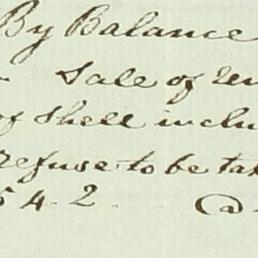 By Balance
Sale of
of Shell inclu
refuse to be ta
54.2 @